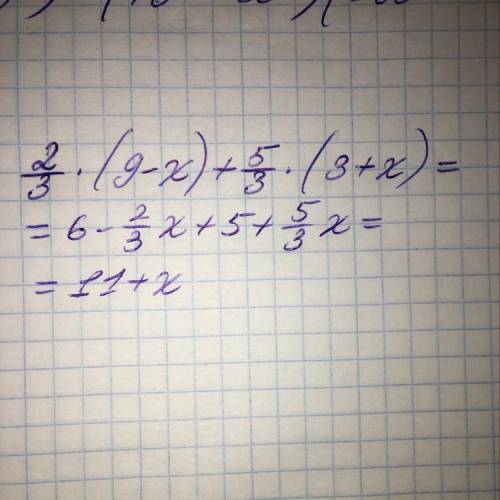 2/3 · (9-x) + 5/3 · (3+x) =
= 6 - 2/3 x + 5 + 5/3 x =
= 11 + x